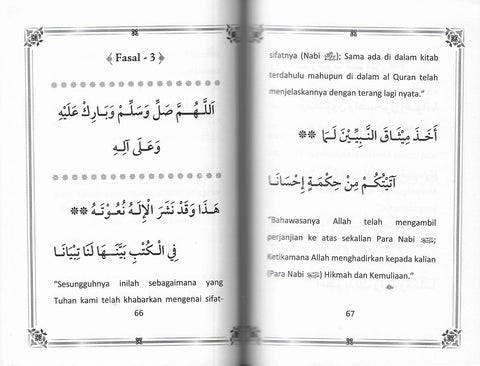 Fasal - 3
اَللّٰهُمَّ صَلِّ وَسَلِّمْ وَبَارِكْ عَلَيْهِ
وَعَلَى آلِهِ
هَذَا وَقَدْ نَشَرَ الْإِلَهُ نُعُوْتَهُ **
فِي الْكُتْبِ بَيَّنَهَا لَنَا تِبْيَانَا
“Sesungguhnya inilah sebagaimana yang
Tuhan kami telah khabarkan mengenai sifat-
66
sifatnya (Nabi ﷺ); Sama ada di dalam kitab
terdahulu mahupun di dalam al Quran telah
menjelaskannya dengan terang lagi nyata.”
أَخَذَ مِيْثَاقَ النَّبِيِّيْنَ لَمَا **
آتَيْتُكُمْ مِنْ حِكْمَةٍ إِحْسَانَا
“Bahawasanya Allah telah mengambil
perjanjian ke atas sekalian Para Nabi ﷺ;
Ketikamana Allah menghadirkan kepada kalian
(Para Nabi ﷺ) Hikmah dan Kemuliaan.”
67